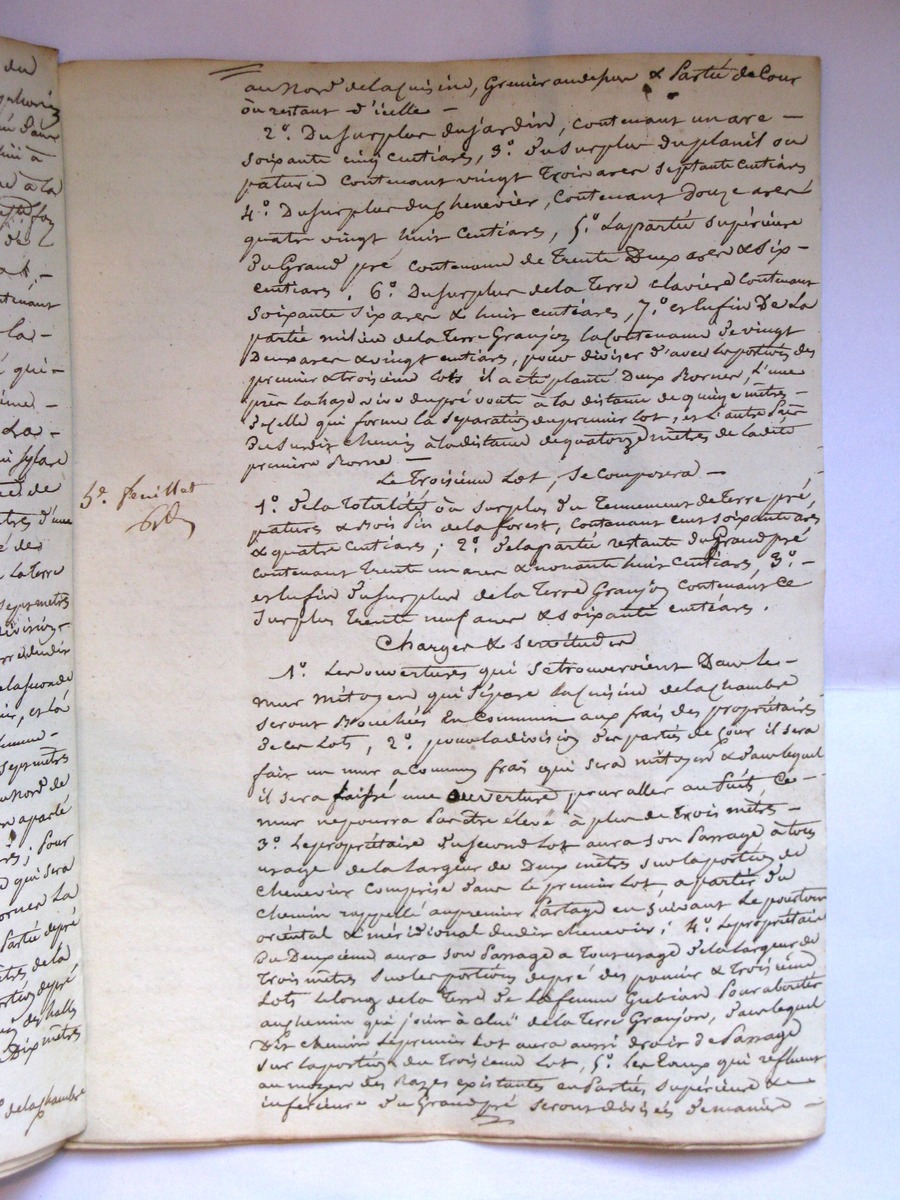 au Nord de la Cuisine, Grenier au dessus & Partie de Cour
ou restant d'icelle —
2.º Du Surplus du jardin, contenant un are —
soixante cinq centiares, 3.º du Surplus du planil ou
pature contenant vingt trois ares septante centiares
4.º Du Surplus du Chenevier, contenant douze ares
quatre vingt huit centiares, 5.º La partie supérieure
du Grand pré contenance de trente deux ares & dix —
centiares, 6.º Du Surplus de la terre clavière contenant
soixante six ares & huit centiares, 7.º et enfin De la
partie milieu de la terre Granjon la Contenance de vingt
Deux ares & vingt centiares, pour diviser d'avec les portions des
premier & troisieme lots il a été planté Deux Bornes, L'une
près la haye vive du pré voute à la distance de quinze mètres —
de celle qui forme la séparation du premier Lot, et L'autre Près
du Susdit chemin à la distance de quatorze mètres de la dite
premiere Borne —
Le Troisieme Lot, Se Composera —
5.e feuillet
1.º de la totalité ou surplus du Tennement de Terre pré,
pature & Bois Pin de la forest, contenant cent soixante ares
& quatre centiares; 2.º de la partie restante du Grand pré
contenant trente un ares & nonante huit centiares, 3.º —
et enfin du surplus de la Terre Granjon contenant ce
Surplus trente neuf ares & soixante centiares.
Charges & servitudes
1.º Les ouvertures qui se trouveroient Dans le —
mur mitoyen qui Sépare la Cuisine de la Chambre
seront Bouchées En Commun aux frais des propriétaires
de ces Lots, 2.º pour la division des parties de Cour il sera
fait un mur a commun frais qui sera mitoyen & dans lequel
il sera laissé une ouverture pour aller au Puits, Ce —
mur ne pourra Pas être élevé à plus de trois mètres —
3.º Le propriétaire du second Lot aura son Passage à tous
usages de la Largeur de Deux mètres sur la portion de
chenevier Comprise dans Le premier Lot, a partir du
chemin rappellé au premier Partage en Suivant Le pourtour
oriental & méridional du dit chenevier; 4.º Le propriétaire
Du Deuxième aura son Passage a Tout usage de la largeur de
Trois mètres sur les portions de pré des premier & troisième
Lots le long de la Terre de La femme Gubian Pour aboutir
au chemin qui joint à celui de la Terre Granjon, dans lequel
Dit chemin Le premier Lot aura aussi droit de Passage
sur la portion du troisieme Lot, 5.º Les Eaux qui refluent
au moyen des Razes existantes en Parties Supérieure & —
inférieure du Grand pré seront divisées de maniere —